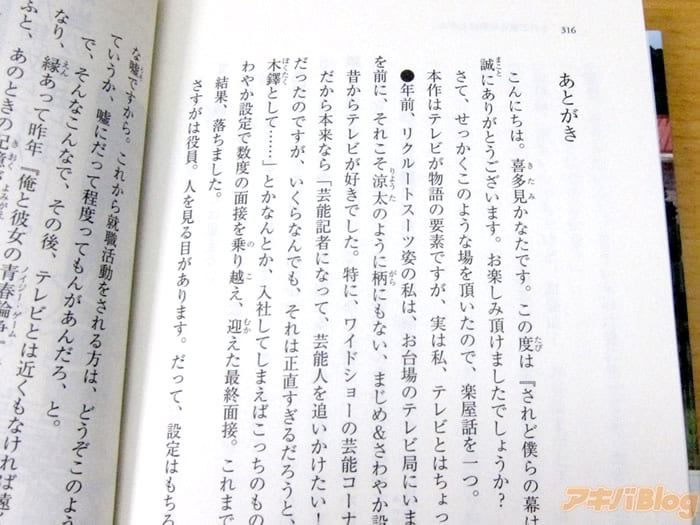 316
あとがき
こんにちは。喜多見かなたです。この度は『されど僕らの幕は
誠にありがとうございます。お楽しみ頂けましたでしょうか?
さて、せっかくこのような場を頂いたので、楽屋話を一つ。
本作はテレビが物語の要素ですが、実は私、テレビとはちょっ
●年前、リクルートスーツ姿の私は、お台場のテレビ局にいま
を前に、それこそ涼太のように柄にもない、まじめ&さわやか設
昔からテレビが好きでした。特に、ワイドショーの芸能コーナ
だから本来なら「芸能記者になって、芸能人を追いかけたい!
だったのですが、いくらなんでも、それは正直すぎるだろうと、
木鐸として……」とかなんとか、入社してしまえばこっちのもの
わやか設定で数度の面接を乗り越え、迎えた最終面接。これまで
結果、落ちました。
さすがは役員。人を見る目があります。だって、設定はもちろ
な嘘ですから。これから就職活動をされる方は、どうぞこのよう
ていうか、嘘にだって程度ってもんがあんだろ、と。
で、そんなこんなで、その後、テレビとは近くもなければ遠
なり、縁あって昨年『俺と彼女の青春論争
ふと、あのときの記憶が
アキバBlog